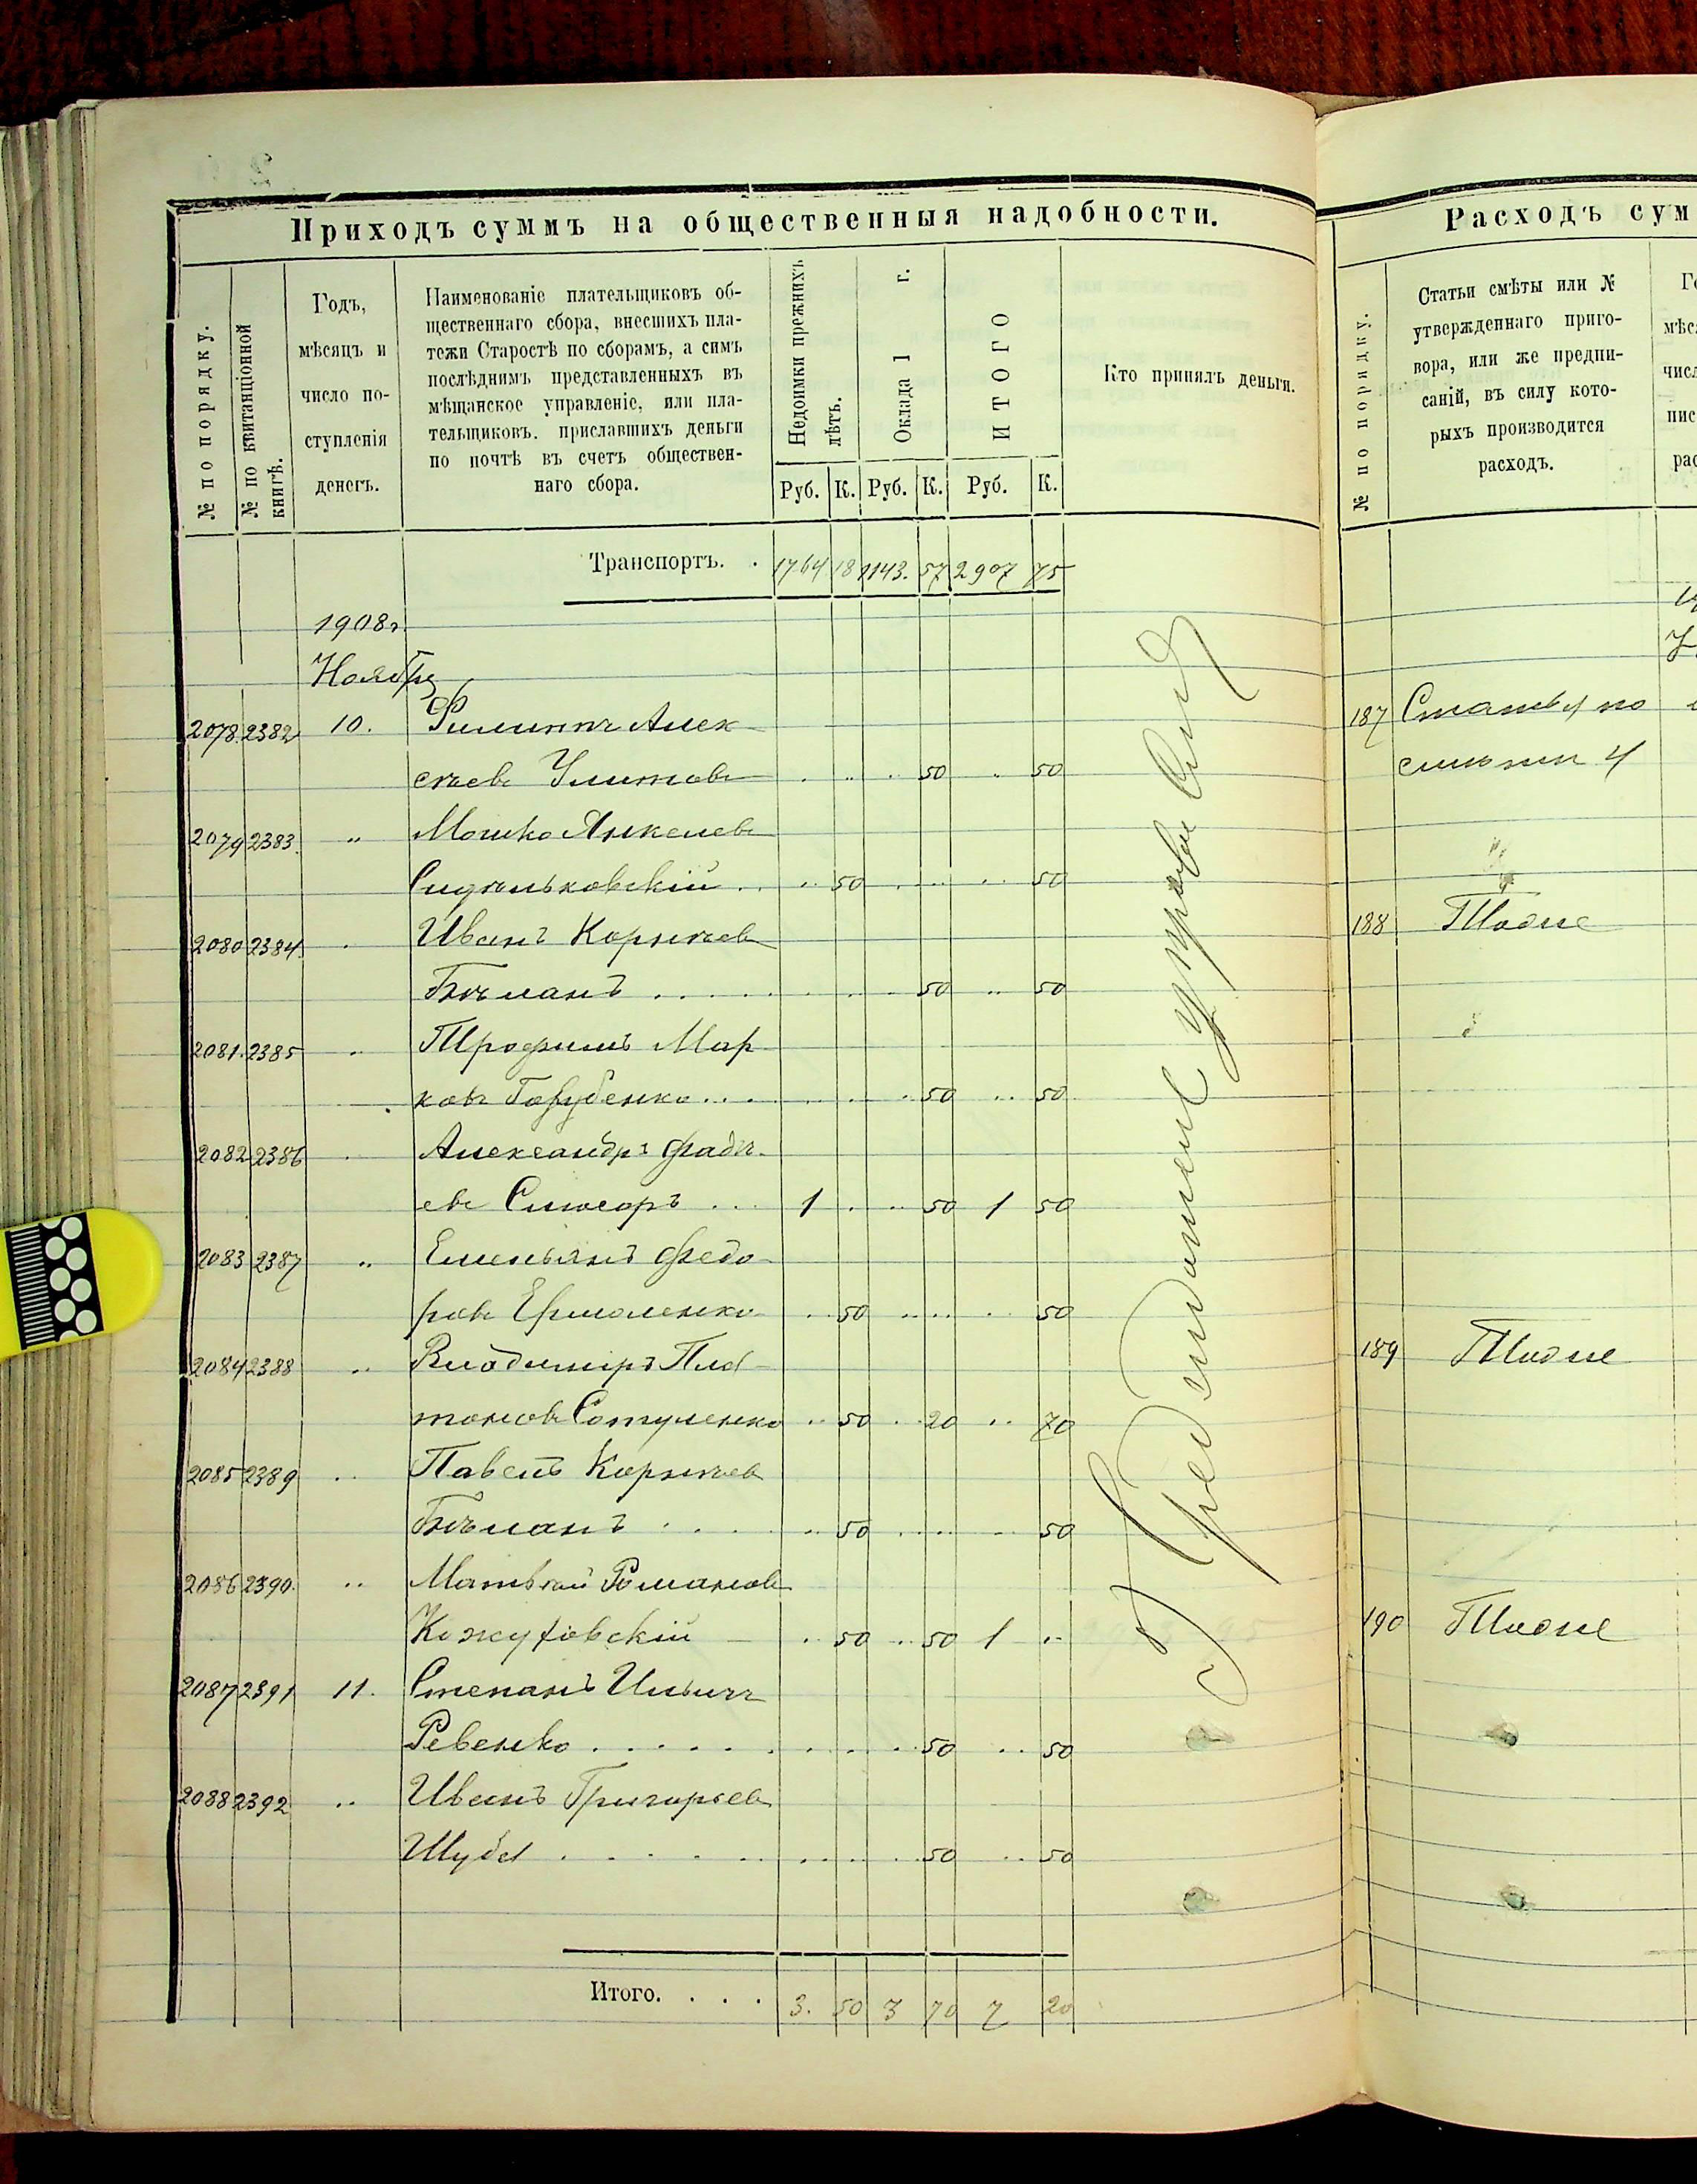 Приходъ суммъ на общественныя надобности.
№ по порядку.
№ по квитанціонной книгѣ.
Годъ,
мѣсяцъ и
число по-
ступленія
денегъ.
Наименованіе плательщиковъ об-
щественнаго сбора, внесшихъ пла-
тежи Старостѣ по сборамъ, а симъ
послѣднимъ представленныхъ въ
мѣщанское управленіе, или пла-
тельщиковъ. приславшихъ деньги
по почтѣ въ счетъ обществен-
наго сбора.
Недоимки прежнихъ лѣтъ.
Оклада 1 г.
ИТОГО
Руб. К. Руб. К. Руб. К.
Кто принялъ деньги.
Транспортъ. . 1764 18 1143. 57 2907 75
1908г.
Ноября
2078. 2382 10. Филиппъ Алек
сѣевъ Улитовъ . .. . 50 .. 50
2079 2383. .. Мошко Янкелевъ
ковскій .. .. 50 . ... .. 50
2080 2384. . Иванъ Корнѣев
Бѣчманъ . . . . . . . 50 .. 50
2081. 2385 .. Трофимъ Мар
ковъ Голубенко . . . . . . 50 .. 50
2082 2386 . Александръ Фадѣ
евъ Слюсаръ ... 1 . .. 50 1 50
2083 2387 .. Емельянъ Федо
ровъ Ермоленко .. 50 .. .. . 50
2084 2388 .. Владиміръ Пла
тоновъ Сотуленко .. 50 . 20 .. 70
2085 2389 .. Павелъ Корнѣев
Бѣчманъ . . . .. 50 . ... .. 50
2086 2390. .. Матвѣй Романовъ
Кожуховскій . 50 .. 50 1 ..
2087 2391 11. Степанъ Ильичъ
Ревенко . . . . . . . . . . 50 .. 50
2088 2392 .. Иванъ Григорьев
Шуба . . . . . . . . . 50 .. 50
Итого. . . . 3. 50 3 70 7 20
Предсѣдатель управы
Расходъ сум
№ по порядку.
Статьи смѣты или №
утвержденнаго приго-
вора, или же предпи-
саній, въ силу кото-
рыхъ производится
расходъ.
Го
мѣс
числ
пис
рас
187 Статья по
188 Тоже
189 Тоже
190 Тоже